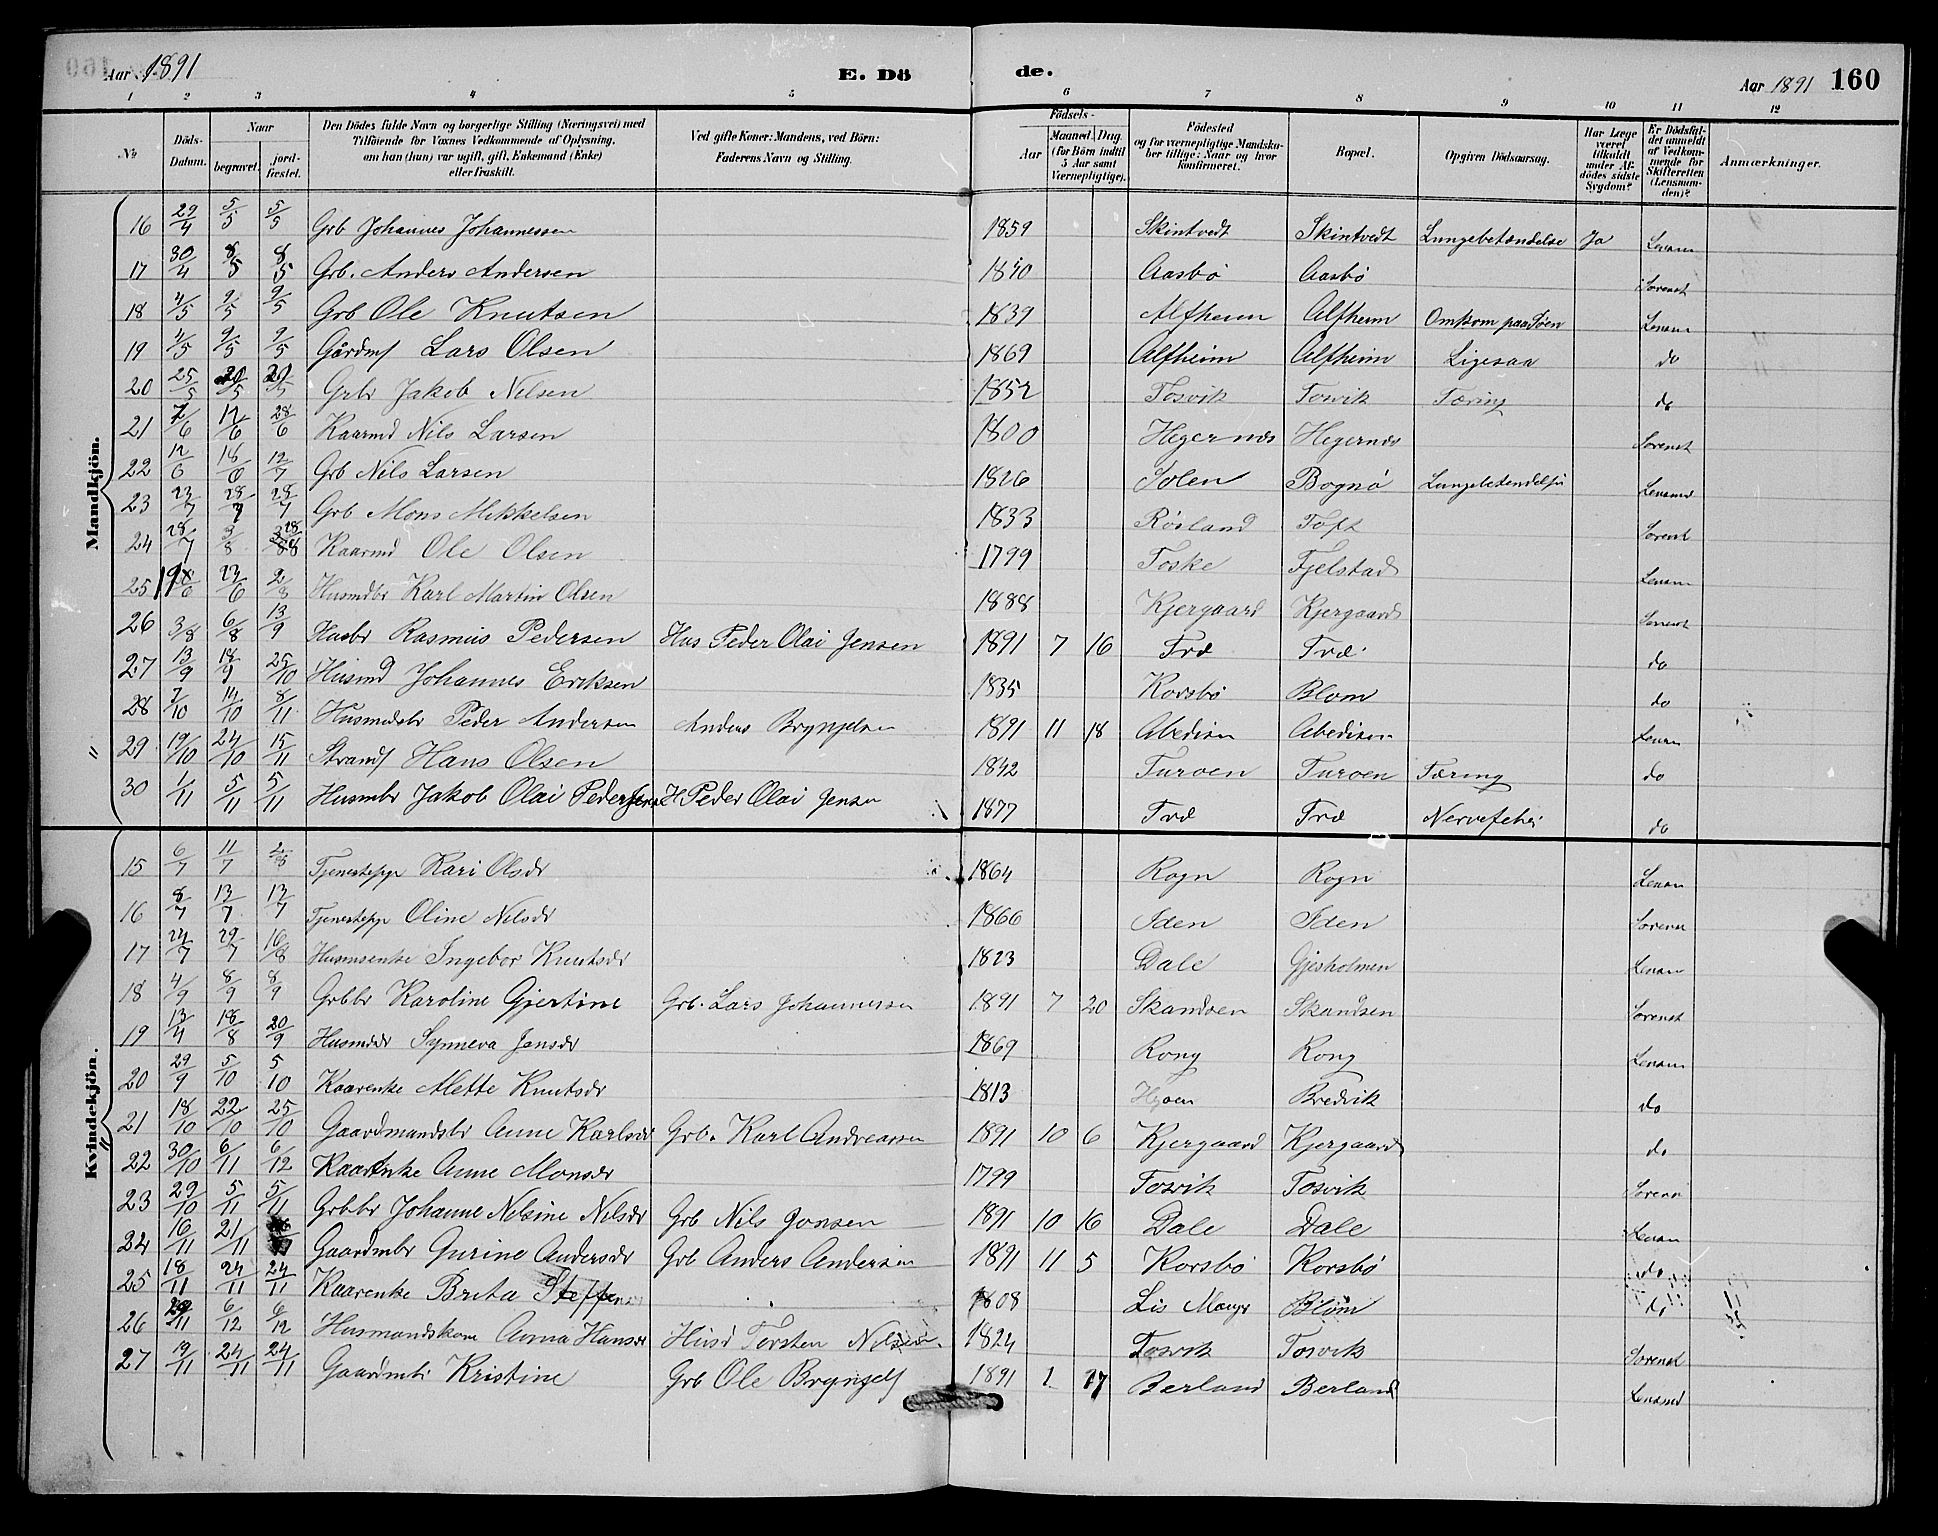 Aar 1891 E. Dö de. Aar 1891 160
1 2 3 4 5 6 7 8 9 10 11 12
№ Döds-Datum. Naar begravet. jord-fæstet. Den Dödes fulde Navn og borgerlige Stilling (Næringsvei) med Tilföiende for Voxnes Vedkommende af Oplysning, om han (hun) var ugift, gift, Enkemand (Enke) eller fraskilt. Ved gifte Koner: Mandens, ved Börn: Faderens Navn og Stilling. Födsels- Aar Maaned. Dag. (for Börn indtil 5 Aar samt Værnepligtige). Födested og for værnepligtige Mandskaber tillige: Naar og hvor konfirmeret. Bopæl. Opgiven Dödsaarsag. Har Læge været tilkaldt under Afdödes sidste Sygdom? Er Dödsfaldet anmeldt af Vedkommende for Skifteretten (Lensmanden)? Anmærkninger.
Mandkjön.
16 29/4 5/5 5/5 Grb Johannes Johannessen 1859 Skintvedt Skintvedt Lungebetændelse Ja Lensm
17 30/4 8/5 8/5 Grb. Anders Andersen 1840 Aasbö Aasbö Sorensk
18 4/5 9/5 9/5 Grb Ole Knutsen 1839 Alfheim Alfheim Omkom paa Söen Lensm
19 4/5 9/5 9/5 Gårdmf Lars Olsen 1869 Alfheim Alfheim Ligesaa do
20 25/5 Grbr Jakob Nilsen 1852 Tosvik Tosvik Tæring do
21 7/6 12/6 28/6 Kaarmd Nils Larsen 1800 Hegernæs Hegernæs Sorensk
22 12/6 18/6 12/7 Grb Nils Larsen 1826 Solen Bognö Lungebetændelse Lensmd
23 23/7 28/7 28/7 Grb Mons Mikkelsen 1833 Rösland Toft Sorensk
24 28/7 3/8 Kaarmd Ole Olsen 1799 Toske Fjelstad Lensm
25 23/6 2/8 Husmdbr Karl Martin Olsen 1888 Kjergaard Kjergaard Sorensk
26 3/8 6/8 13/9 Husbr Rasmus Pedersen Hus Peder Olai Jensen 1891 7 16 Træ Træ do
27 13/9 18/9 25/10 Husmd Johannes Eriksen 1835 Korsbö Blom do
28 7/10 14/10 8/11 Husmdsbr Peder Andersen Anders Brynjelsen 1891 11 18 Abedisen Abedisen Lensm
29 19/10 24/10 15/11 Strands Hans Olsen 1842 Turöen Turöen Tæring do
30 1/11 5/11 5/11 Husmbr Jakob Olai Pedersen H Peder Olai Jensen 1877 Træ Træ Nervefeber do
Kvindekjön.
15 6/7 11/7 2/8 Tjenestepge Kari Olsdr 1864 Rogn Rogn Lensm
16 8/7 13/7 13/7 Tjenestepge Oline Nilsdr 1866 Iden Iden Sorensk
17 24/7 29/7 16/8 Husmsenke Ingebor Knutsdr 1823 Dale Gjesholmen Lensm
18 4/9 8/9 8/9 Grbbr Karoline Gjertine Grb. Lars Johannessen 1891 7 20 Skandsen Skandsen Sorensk
19 13/4 18/8 20/9 Husmdr Synneva Jensdr 1869 Rong Rong Lensm
20 29/9 5/10 5/10 Kaarenke Mette Knutsdr 1813 Bredvik do
21 18/10 22/10 25/10 Gaardmandsbr Anne Karlsdr Grb. Karl Andreassen 1891 10 6 Kjergaard Kjergaard do
22 30/10 6/11 6/12 Kaarenke Anne Monsdr 1799 Tosvik Tosvik Sorensk
23 29/10 5/11 5/11 Grbbr Johanne Nilsine Nilsdr Grb Nils Jonsen 1891 10 16 Dale Dale Lensm
24 16/11 21/11 Gaardmbr Gurine Andersdr Grb Anders Andersen 1891 11 5 Korsbö Korsbö do
25 18/11 24/11 24/11 Kaarenke Brita Steffens 1808 Lis Mangr Blom do
26 29/11 6/12 6/12 Husmandskone Anna Hansdr Husd Torsten Nilsen 1824 Tosvik Tosvik Sorensk
27 19/11 24/11 24/11 Gaardmbr Kristine Grb Ole Bryngelf 1891 1 17 Berland Berland Lensmd